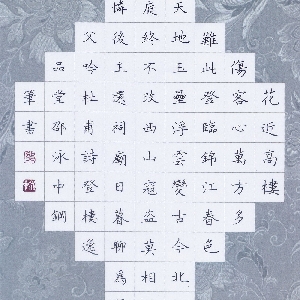 花近高樓
傷客心萬方多
難此登臨錦江春色
天地玉壘浮雲變古今北
庭終不改西山寇盜莫相
憐後主還祠廟日暮聊為
父吟杜甫詩登樓逸
品堂邵泳中鋼
筆書